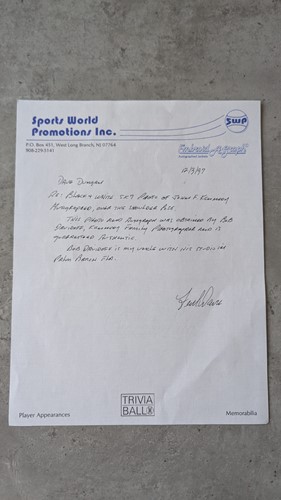 Sports World
Promotions Inc.
SWP
P.O. Box 451, West Long Branch, NJ 07764
908.229.5141
12/3/97
Dave Duncan
Re: Black & White 5x7 Photo of John F. Kennedy
Autographed, over the shoulder pose.
This photo and autograph was obtained by Bob
Davidoff, Kennedy Family Photographer and is
guaranteed authentic.
Bob Davidoff is my uncle with his studio in
Palm Beach Fla.
Player Appearances
TRIVIA
BALL®
Memorabilia